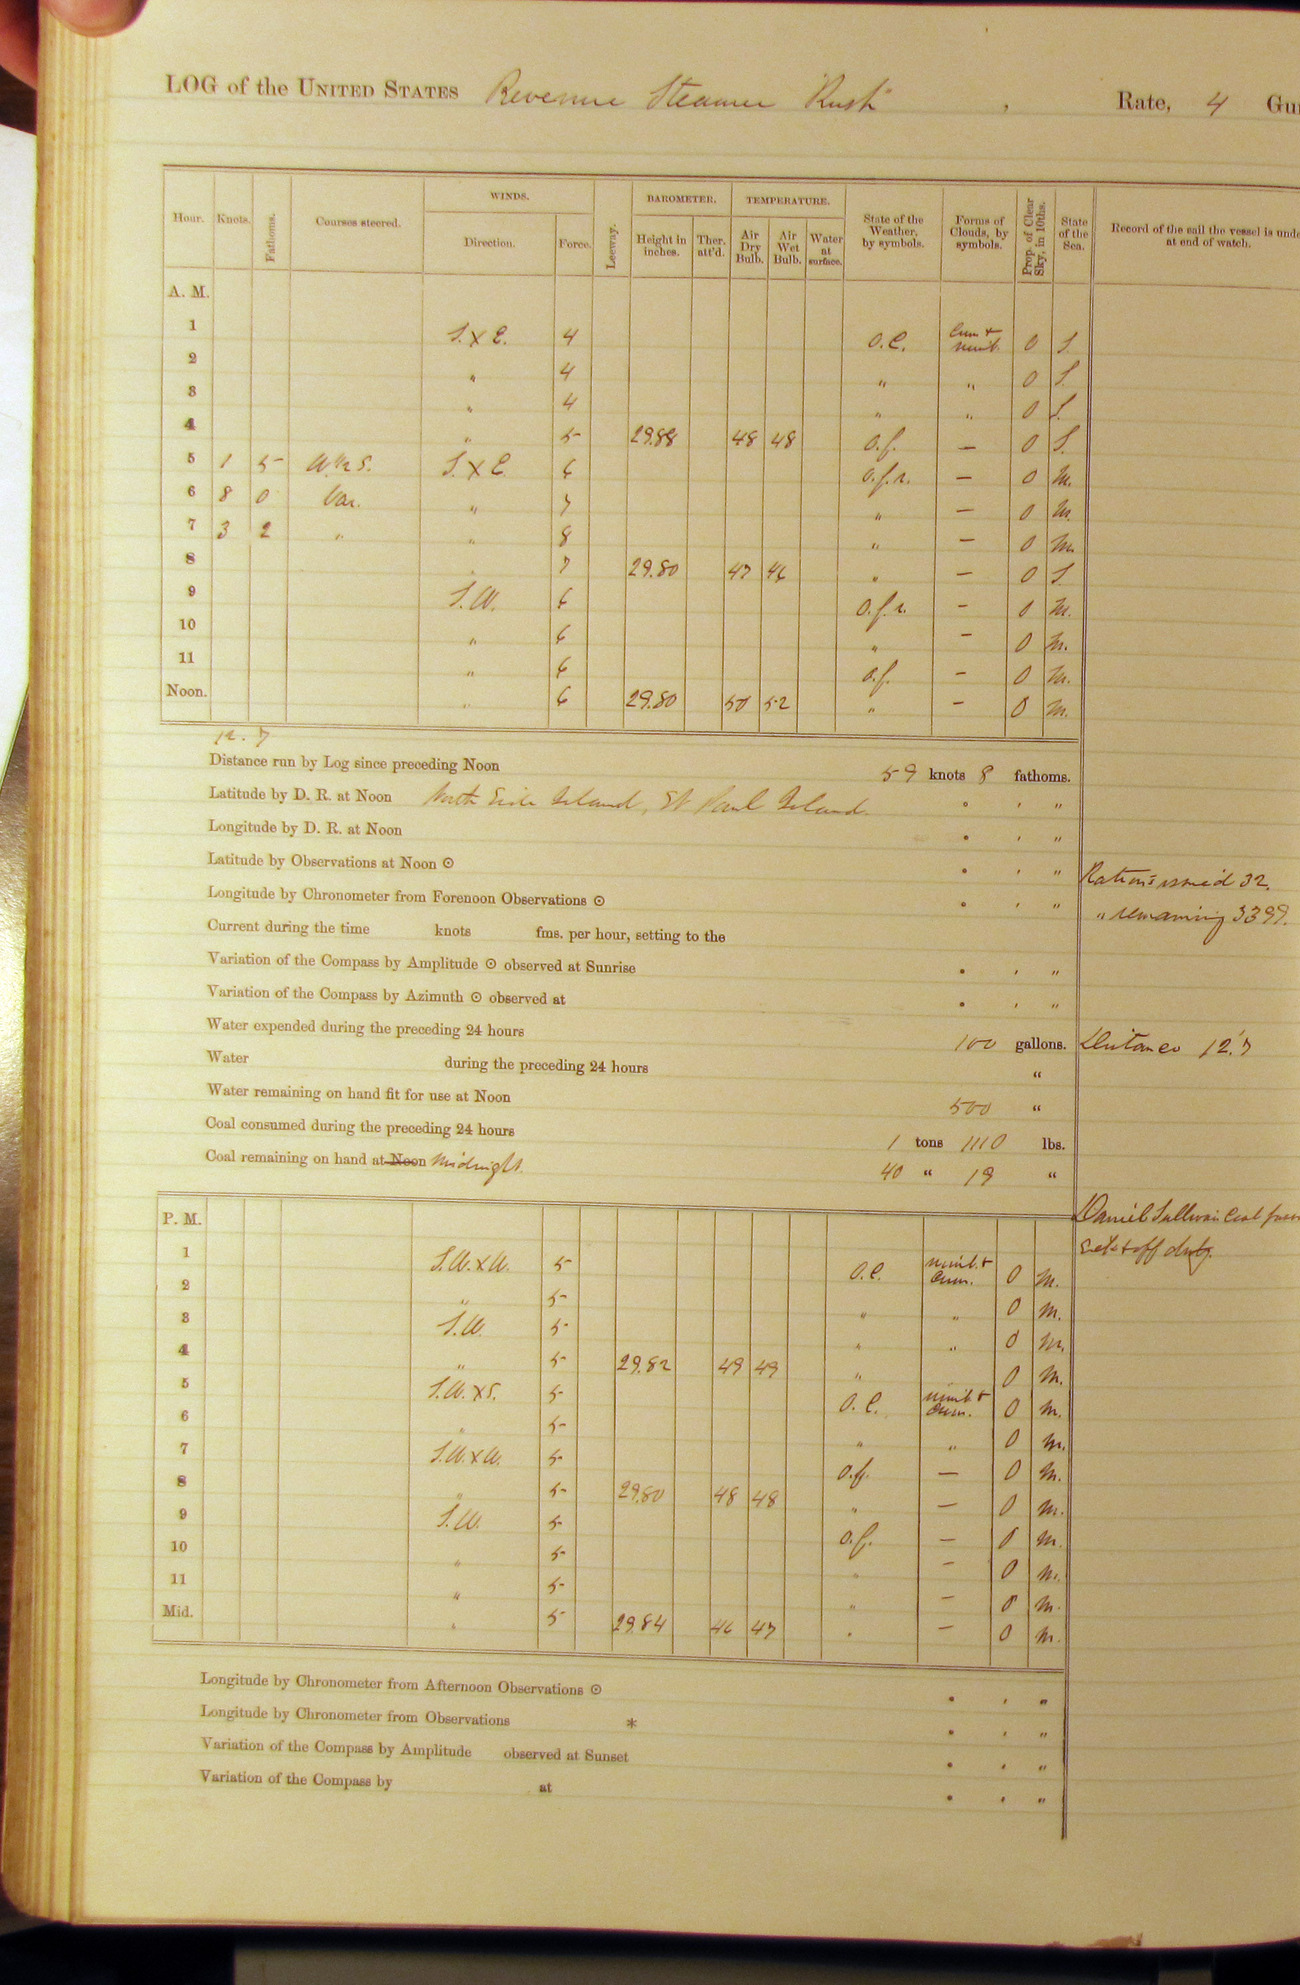 LOG of the UNITED STATES Revenue Steamer "Rush" , Rate, 4 Gu
Hour. Knots. Fathoms. Courses steered. WINDS. Direction. Force. Leeway. BAROMETER. Height in inches. Ther. att'd. TEMPERATURE. Air Dry Bulb. Air Wet Bulb. Water at surface. State of the Weather, by symbols. Forms of Clouds, by symbols. Prop. of Clear Sky, in 10ths. State of the Sea. Record of the sail the vessel is unde at end of watch.
A. M.
1 S. x E. 4 O.C. Cum + Nimb. 0 S.
2 " 4 " " 0 S.
3 " 4 " " 0 S.
4 " 5 29.88 48 48 O.f. — 0 S.
5 1 5 S. x E. 6 O.f.r. — 0 M.
6 8 0 Var. " 7 " — 0 M.
7 3 2 " " 8 " — 0 M.
8 " 7 29.80 47 46 " — 0 S.
9 S.W. 6 O.f.r. — 0 M.
10 " 6 " — 0 M.
11 " 6 O.f. — 0 M.
Noon. " 6 29.80 50 52 " — 0 M.
12. 7
Distance run by Log since preceding Noon 59 knots 8 fathoms.
Latitude by D. R. at Noon North Side Island, St Paul Island. ° ' "
Longitude by D. R. at Noon ° ' "
Latitude by Observations at Noon ⊙ ° ' "
Rations issued 32.
Longitude by Chronometer from Forenoon Observations ⊙ ° ' "
" remaining 3399.
Current during the time knots fms. per hour, setting to the
Variation of the Compass by Amplitude ⊙ observed at Sunrise ° ' "
Variation of the Compass by Azimuth ⊙ observed at ° ' "
Water expended during the preceding 24 hours 100 gallons.
Distance 12.'7
Water during the preceding 24 hours "
Water remaining on hand fit for use at Noon 500 "
Coal consumed during the preceding 24 hours 1 tons 1110 lbs.
Coal remaining on hand at Noon Midnight 40 " 19 "
Daniel Sullivan Coal
P. M.
off duty.
1 S.W. x W. 5 O.C. Nimb. + Cum. 0 M.
2 " 5 " " 0 M.
3 S.W. 5 " " 0 M.
4 " 5 29.82 49 49 " 0 M.
5 S.W. x S. 5 O.C. Nimb + Cum. 0 M.
6 " 5 " " 0 M.
7 S.W. x W. 5 O.f. — 0 M.
8 " 5 29.80 48 48 " — 0 M.
9 S.W. 5 O.f. — 0 M.
10 " 5 " — 0 M.
11 " 5 " — 0 M.
Mid. " 5 29.84 46 47 " — 0 M.
Longitude by Chronometer from Afternoon Observations ⊙ ° ' "
Longitude by Chronometer from Observations * ° ' "
Variation of the Compass by Amplitude observed at Sunset ° ' "
Variation of the Compass by at ° ' "